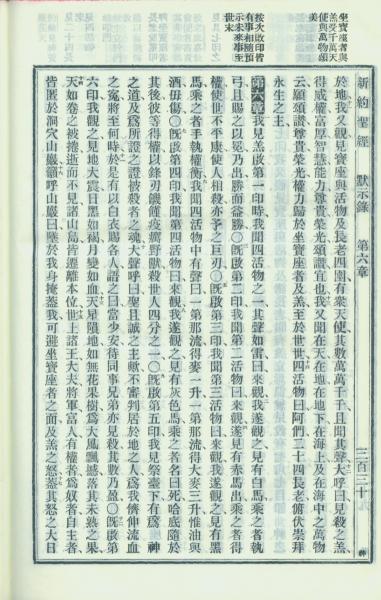 新約聖經 默示錄 第六章 三百二十
坐寶座者與
羔受千萬天
使與萬物頌
美
按次啟印皆
有事相隨預
示未來事至
世末
於地我又觀見寶座與活物及長老周圍有衆天使其數萬萬千千且聞其聲大呼曰見殺之羔
得承權富厚智慧能力尊貴榮光頌讚宜也我又聞在天在地在地下在海上及在海中之萬物
云願頌讚尊貴榮光權力歸於坐寶座者及羔至於世世四活物曰阿們二十四長老俯伏崇拜
永生之主
第六章我見羔啟第一印時我聞四活物之一其聲如雷曰來觀我遂觀之見有白馬乘之者執
弓且賜之以冕乃出勝而益勝○旣啟第二印我聞第二活物曰來觀遂見有赤馬出乘之者得
權使世不平康使人相殺亦予之巨刃○旣啟第三印我聞第三活物曰來觀我遂觀之見有黑
馬乘之者手執權衡我聞四活物中有聲曰一第那流得麥一升一第那流得大麥三升惟油與
酒毋傷○旣啟第四印我聞第四活物曰來觀我遂觀之見有灰色馬乘之者名曰死哈底隨於
其後彼等得權以鋒刃饑饉疫癘野獸殺世人四分之一○旣啟第五印我見祭臺下有爲 神
之道及爲所證之證被殺者之魂大聲呼曰聖且誠之主歟不審判居於地之人爲我儕伸流血
之寃將至何時於是有以白衣賜各人語之曰當少安待同事兄弟亦見殺其數乃盈○旣啟第
六印我觀之見地大震日黑如褐月變如血天星隕地如無花果樹爲大風飄撼落其未熟之果
天如卷之被捲逝而不見諸山島皆遷離本位世上諸王大夫將軍富人有權者爲奴者自主者
皆匿於洞穴山巖籲呼山巖曰墜於我身掩蓋我可避坐寶座者之面及羔之怒蓋其怒之大日